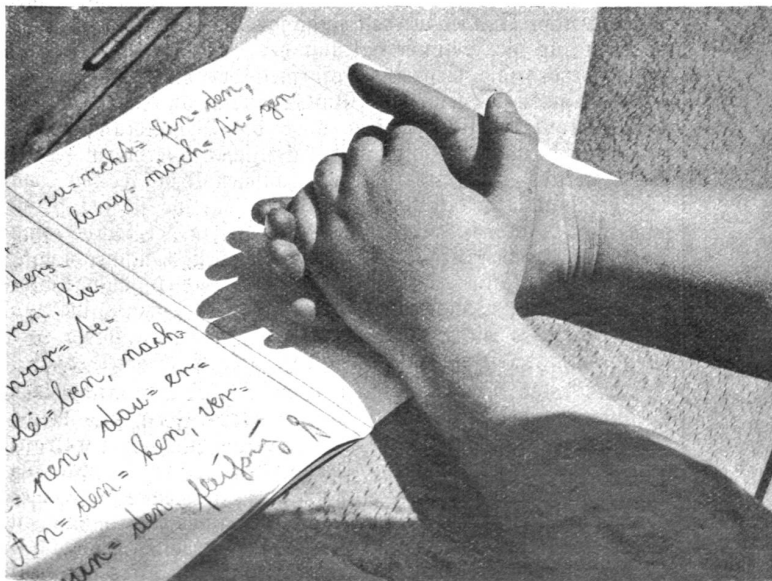 zu=recht=fin=den,
lang=mäch=ti=gen
ders-
ren, lie-
war=te=
blei=ben, nach=
pen, dau=er=
An=den=ken, ver=
den fleißig